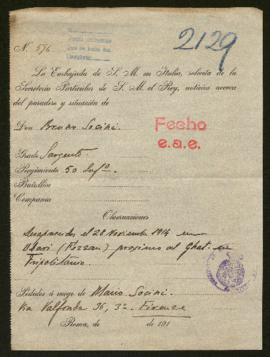 N. 576
2129
La Embajada de S. M. en Italia, solicita de la
Secretaría Particular de S. M. el Rey, noticias acerca
del paradero y situación de
Don Bruno Socini
Fecho
e.a.e.
Grado Sargento
Regimiento 50 Infª.
Batallón
Compañía
Observaciones
desaparecido el 28 Noviembre 1914 en
Ubari (Fezzan) proximo al Ghat en
Tripolitania
Pedidos á ruego de Mario Socini
Via Valfonda 36, 3º Firenze
Roma, de de 191